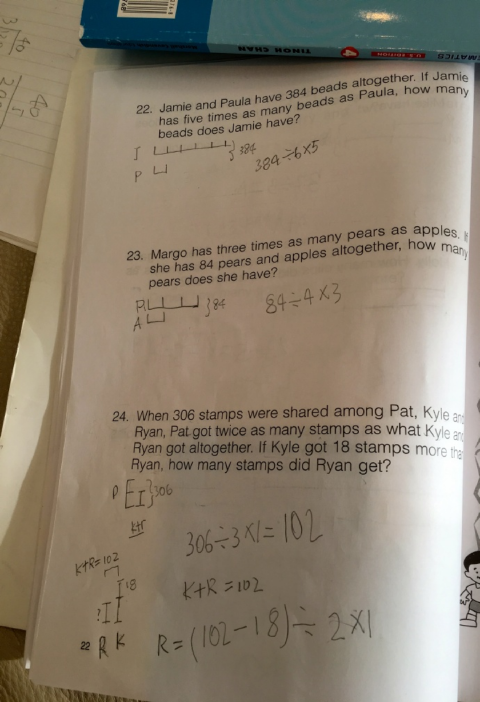 TINOH CHAN
4
U.S. EDITION
22. Jamie and Paula have 384 beads altogether. If Jamie
has five times as many beads as Paula, how many
beads does Jamie have?
J
384
P
384÷6×5
23. Margo has three times as many pears as apples.
she has 84 pears and apples altogether, how many
pears does she have?
84
A
84÷4×3
24. When 306 stamps were shared among Pat, Kyle and
Ryan, Pat got twice as many stamps as what Kyle and
Ryan got altogether. If Kyle got 18 stamps more than
Ryan, how many stamps did Ryan get?
P
306
K+R
306÷3×1=102
K+R=102
18
?
R K
K+R=102
R=(102-18)÷2×1
22